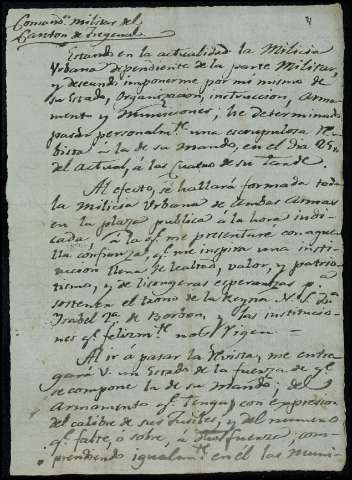 Comand.ª militar del
Canton de Fregenal
Estando en la actualidad la Milicia
Urbana dependiente de la parte Militar,
y deseando imponerme por mi mismo de
su Estado, Organizacion, instruccion, Arma-
mento y Municiones; he determinado
pasar personalm.te una escrupulosa Re-
bista, á la de su mando, en el dia 25
del actual, á las cuatro de su tarde.
Al efecto, se hallará formada toda
la Milicia Urbana de ambas armas
en la plaza publica á la hora indi-
cada, á la q.e me presentaré con aque-
lla confianza, q.e me inspira una insti-
tucion llena de lealtad, valor, y patrio-
tismo, y de lisongeras esperanzas p.a
sostener el trono de la Reyna N. S. D.ª
Isabel 2.a de Borbon, y las institucio-
nes q.e felizm.te nos rigen.
Al ir a pasar la Revista, me entre-
gará V. un Estado de la fuerza de q.e
se compone la de su mando; del
Armamento q.e tenga, con expresion
del calibre de sus fusiles, y del numero
q.e falte, ó sobre, á fuerza, com-
prendiendo igualm.te en él las muni-